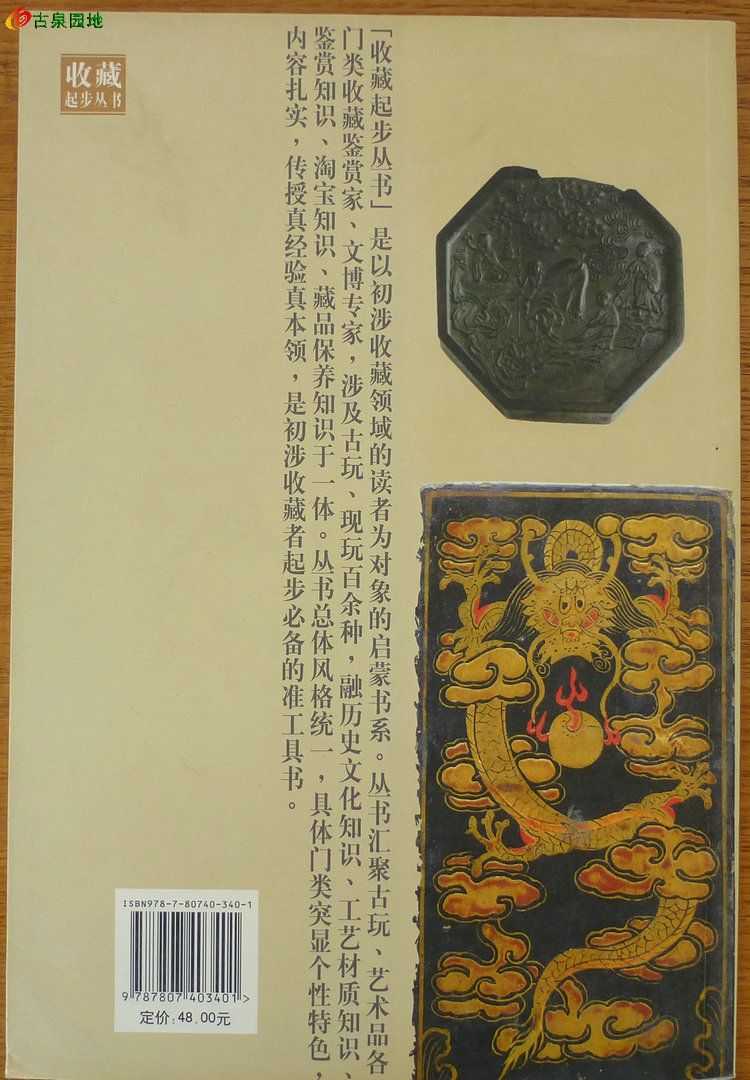 古泉园地
收藏
起步丛书
「收藏起步丛书」是以初涉收藏领域的读者为对象的启蒙书系。丛书汇聚古玩、艺术品各
门类收藏鉴赏家、文博专家，涉及古玩、现玩百余种，融历史文化知识、工艺材质知识、
鉴赏知识、淘宝知识、藏品保养知识于一体。丛书总体风格统一，具体门类突显个性特色，
内容扎实，传授真经验真本领，是初涉收藏者起步必备的准工具书。
ISBN978-7-80740-340-1
9 787807 403401 >
定价:48.00元